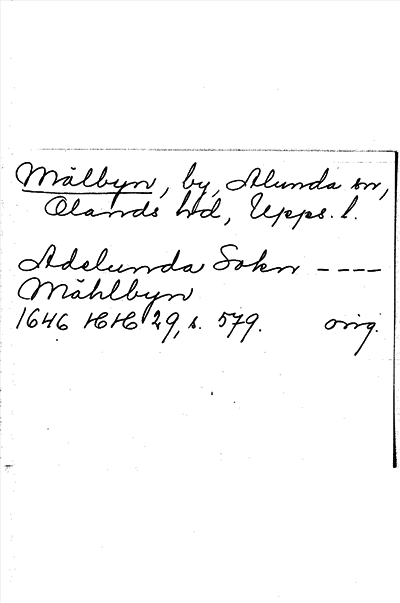 Mälbyn, by, Alunda sn,
Olands hd, Upps. l.
Adelunda Sokn ----
Mählbyn
1646 HH 29, s. 579. orig.